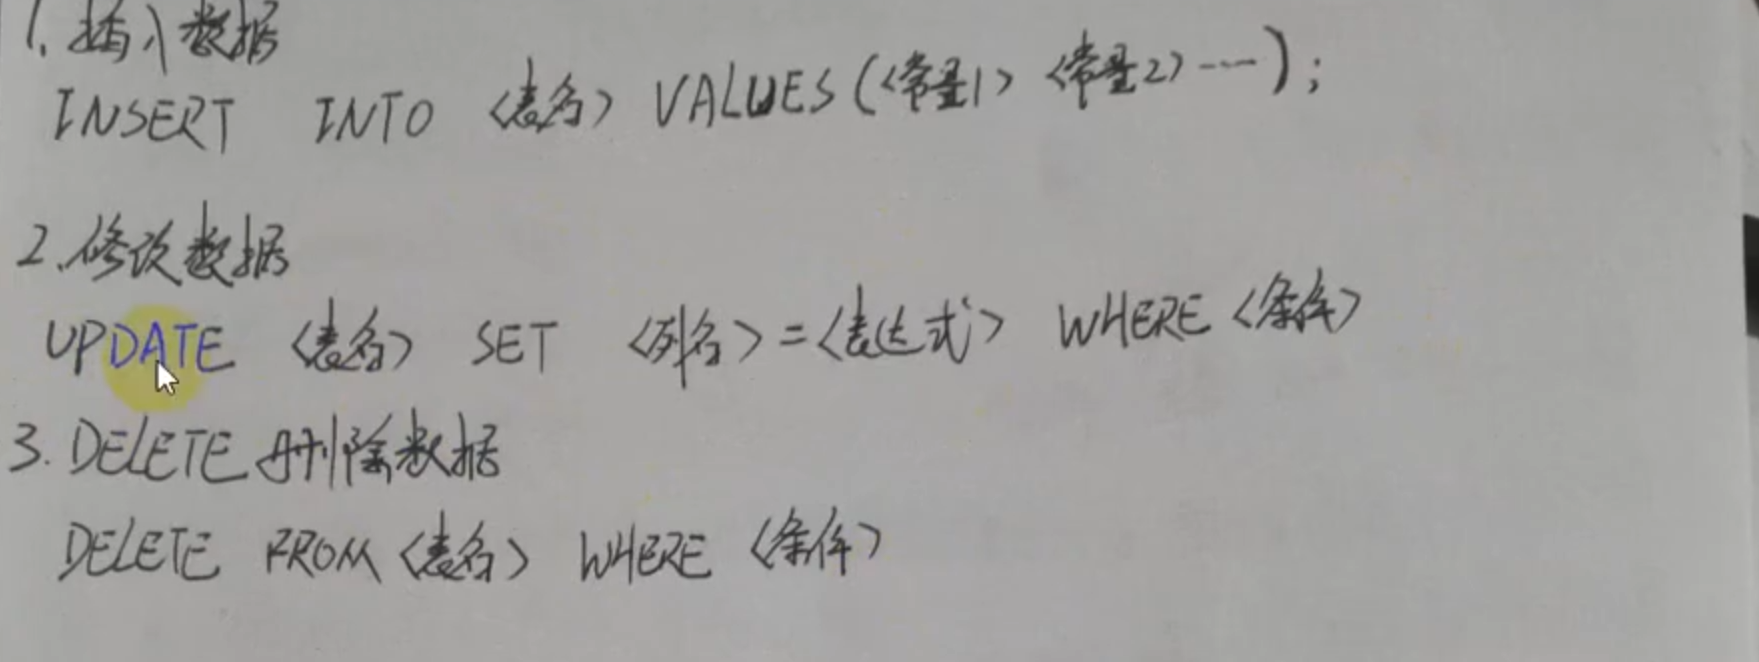 1. 插入数据
INSERT INTO <表名> VALUES(<常量1> <常量2> ……);
2. 修改数据
UPDATE <表名> SET <列名>=<表达式> WHERE <条件>
3. DELETE 删除数据
DELETE FROM <表名> WHERE <条件>